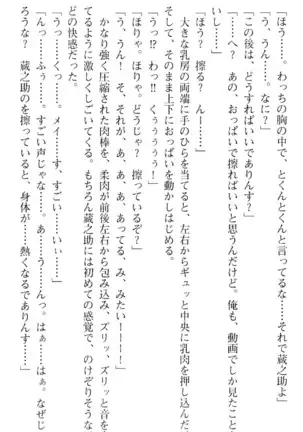 「ほう?……わっちの胸の中で、とくんとくんと言ってるな……それで蔵之助よ」
「う、うん……。なに?」
「この後は、どうすればいいでありんす?」
「……へ?　あの、おっぱいで擦ればいいと思うんだけど。俺も、動画でしか見たこと
いし……」
「ほう?　擦る?　んー……」
　大きな乳房の両端に手のひらを当てると、左右からギュッと中央に乳肉を押し込んだ
そして、そのまま上下におっぱいを動かしはじめる。
「うっ!?　わっ!!　くぅぅぅぅぅ!」
「ほりゃ。ほりゃ。どうじゃ?　擦っているぞ?」
「う、うん!　そ、それが、あ、あ、あってる、み、みたいーーー!」
　かなり強く圧縮された肉棒を、柔肉が前後左右から包み込み、ズリッ、ズリッと音を
てるように激しくしごいてくる。もちろん蔵之助には初めての感覚で、のけぞりそうな
どの快感だった。
「うっ……くっ……。メイ……す、すごい……いい……」
「んっ……ふぅ……。すごい声じゃな……。あ……う……んっ。はぁ……はぁ。なぜじ
ろうな?　蔵之助のを擦っていると、身体が……熱くなるでありんす……」